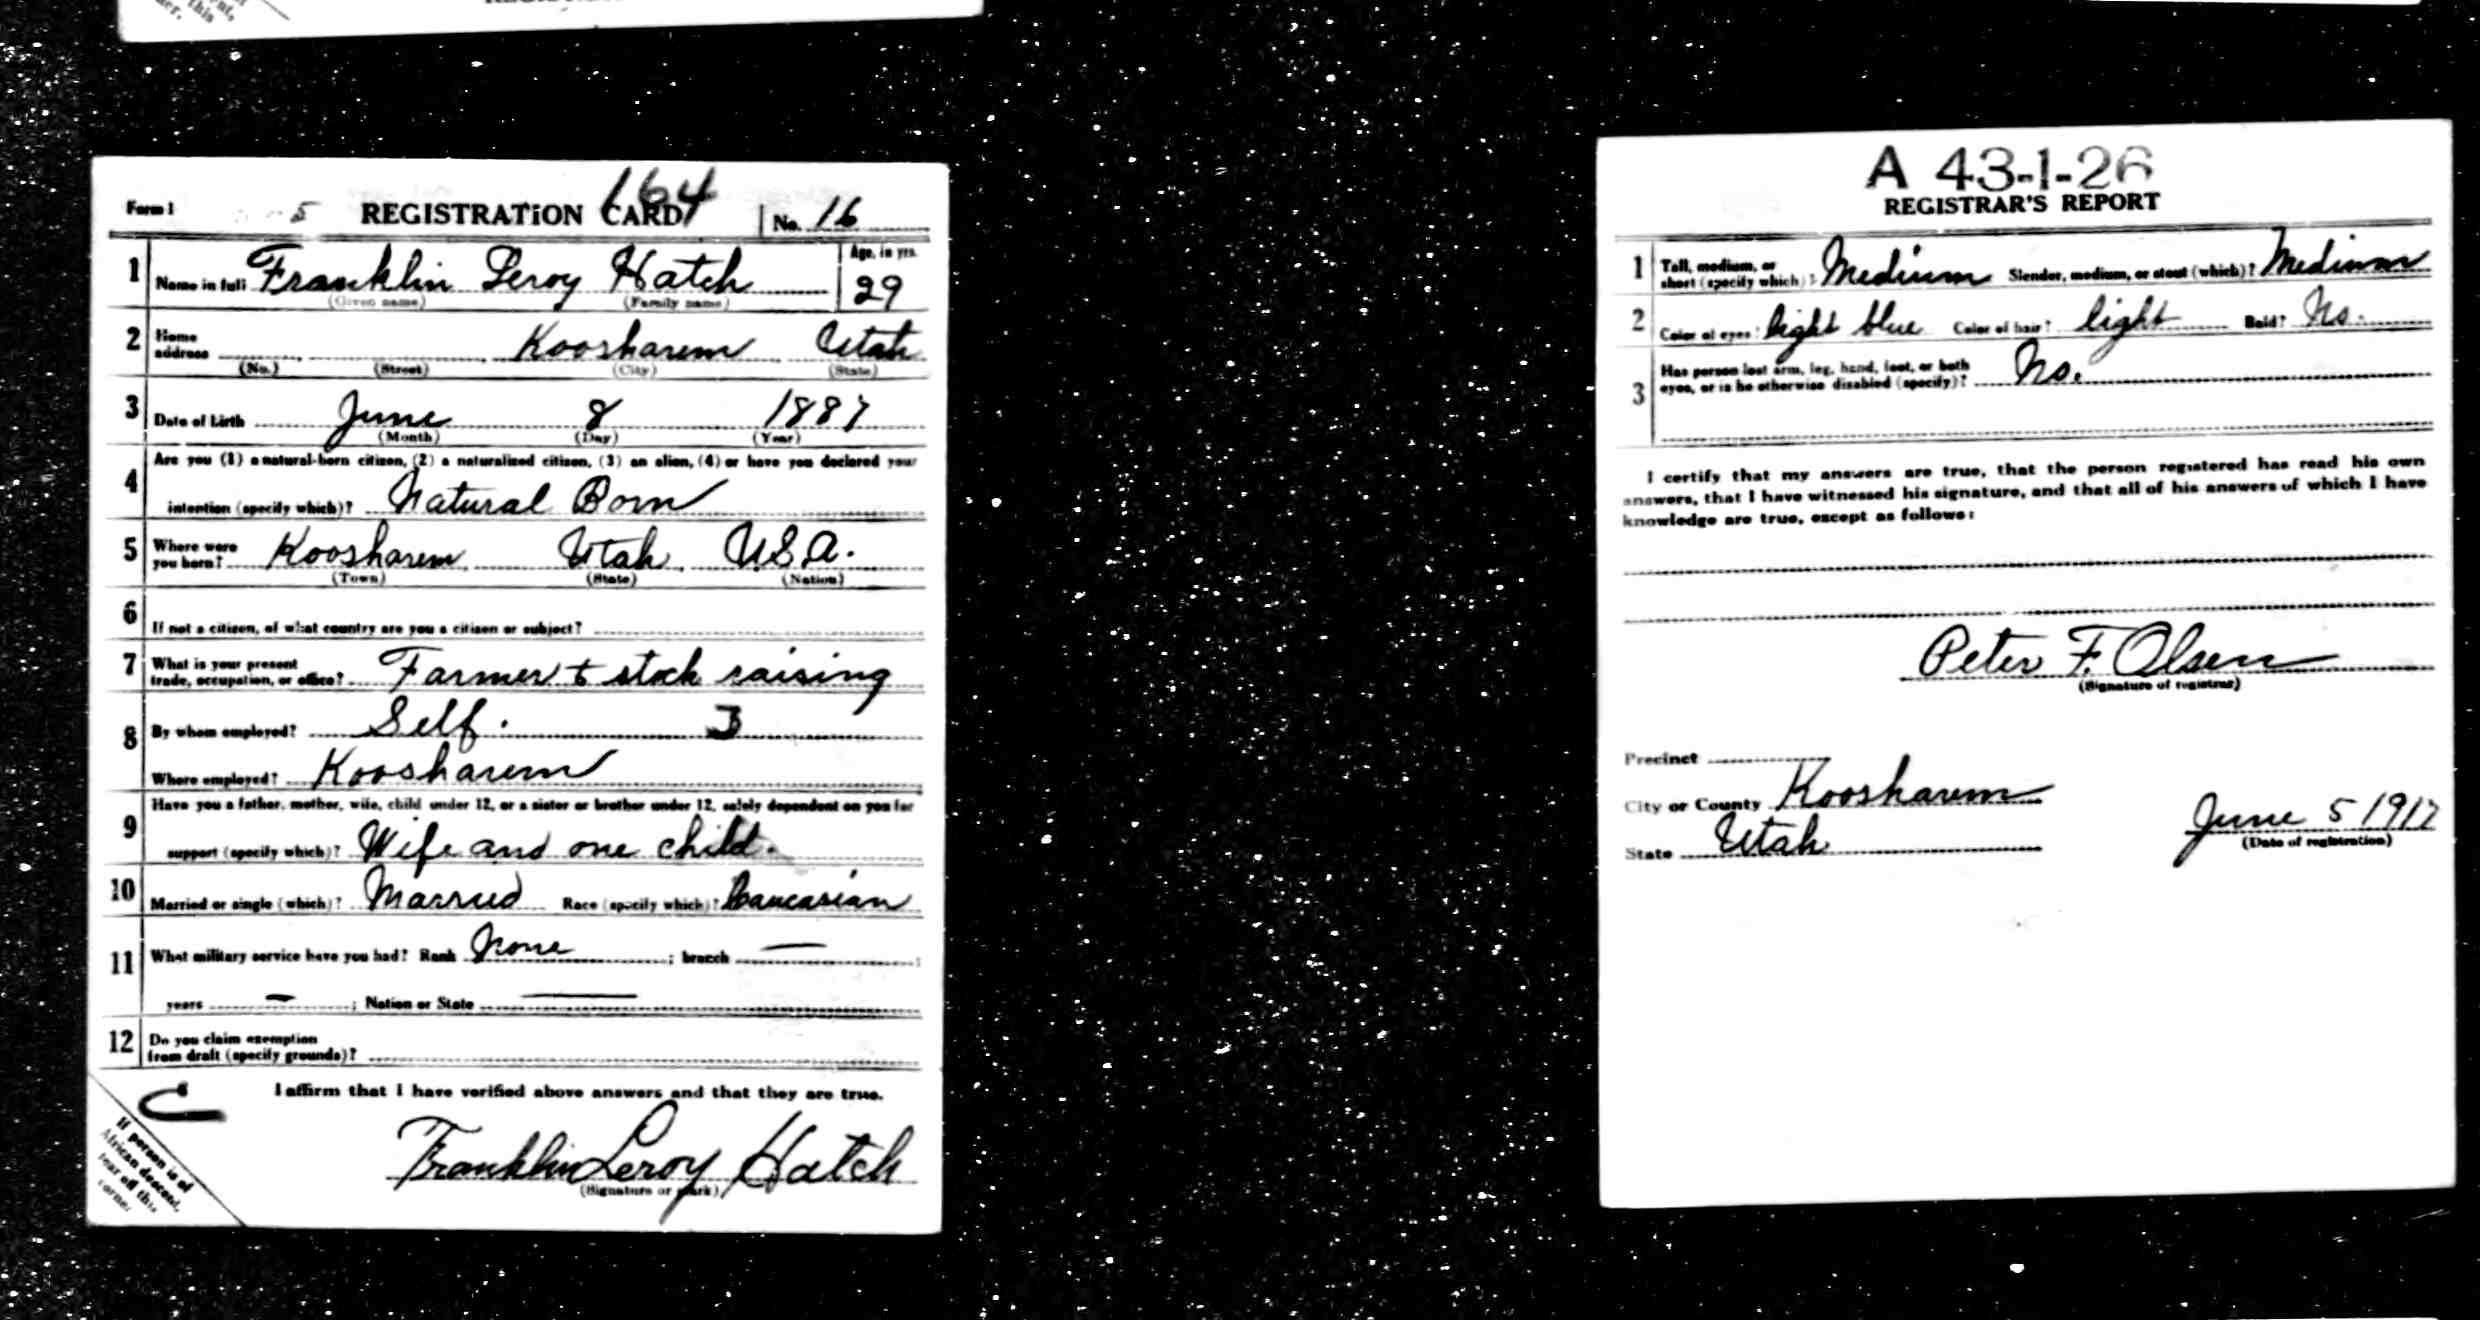 164
Form 1 5 REGISTRATION CARD No. 16
1 Name in full Franklin Leroy Hatch Age, in yrs. 29
(Given name) (Family name)
2 Home address Koosharem Utah
(No.) (Street) (City) (State)
3 Date of birth June 8 1887
(Month) (Day) (Year)
4 Are you (1) a natural-born citizen, (2) a naturalized citizen, (3) an alien, (4) or have you declared your
intention (specify which)? Natural Born
5 Where were you born? Koosharem Utah U.S.A.
(Town) (State) (Nation)
6 If not a citizen, of what country are you a citizen or subject?
7 What is your present trade, occupation, or office? Farmer + stock raising
8 By whom employed? Self. 3
Where employed? Koosharem
9 Have you a father, mother, wife, child under 12, or a sister or brother under 12, solely dependent on you for
support (specify which)? Wife and one child.
10 Married or single (which)? Married Race (specify which)? Caucasian
11 What military service have you had? Rank None ; branch — ;
years — ; Nation or State —
12 Do you claim exemption
from draft (specify grounds)?
I affirm that I have verified above answers and that they are true.
Franklin Leroy Hatch
(Signature or mark)
If person is of
African descent,
tear off this
corner.
A 43-1-26
REGISTRAR'S REPORT
1 Tall, medium, or short (specify which)? Medium Slender, medium, or stout (which)? Medium
2 Color of eyes? light blue Color of hair? light Bald? No.
3 Has person lost arm, leg, hand, foot, or both
eyes, or is he otherwise disabled (specify)? No.
I certify that my answers are true, that the person registered has read his own
answers, that I have witnessed his signature, and that all of his answers of which I have
knowledge are true, except as follows:
Peter F. Olsen
(Signature of registrar)
Precinct
City or County Koosharem
State Utah
June 5 1917
(Date of registration)